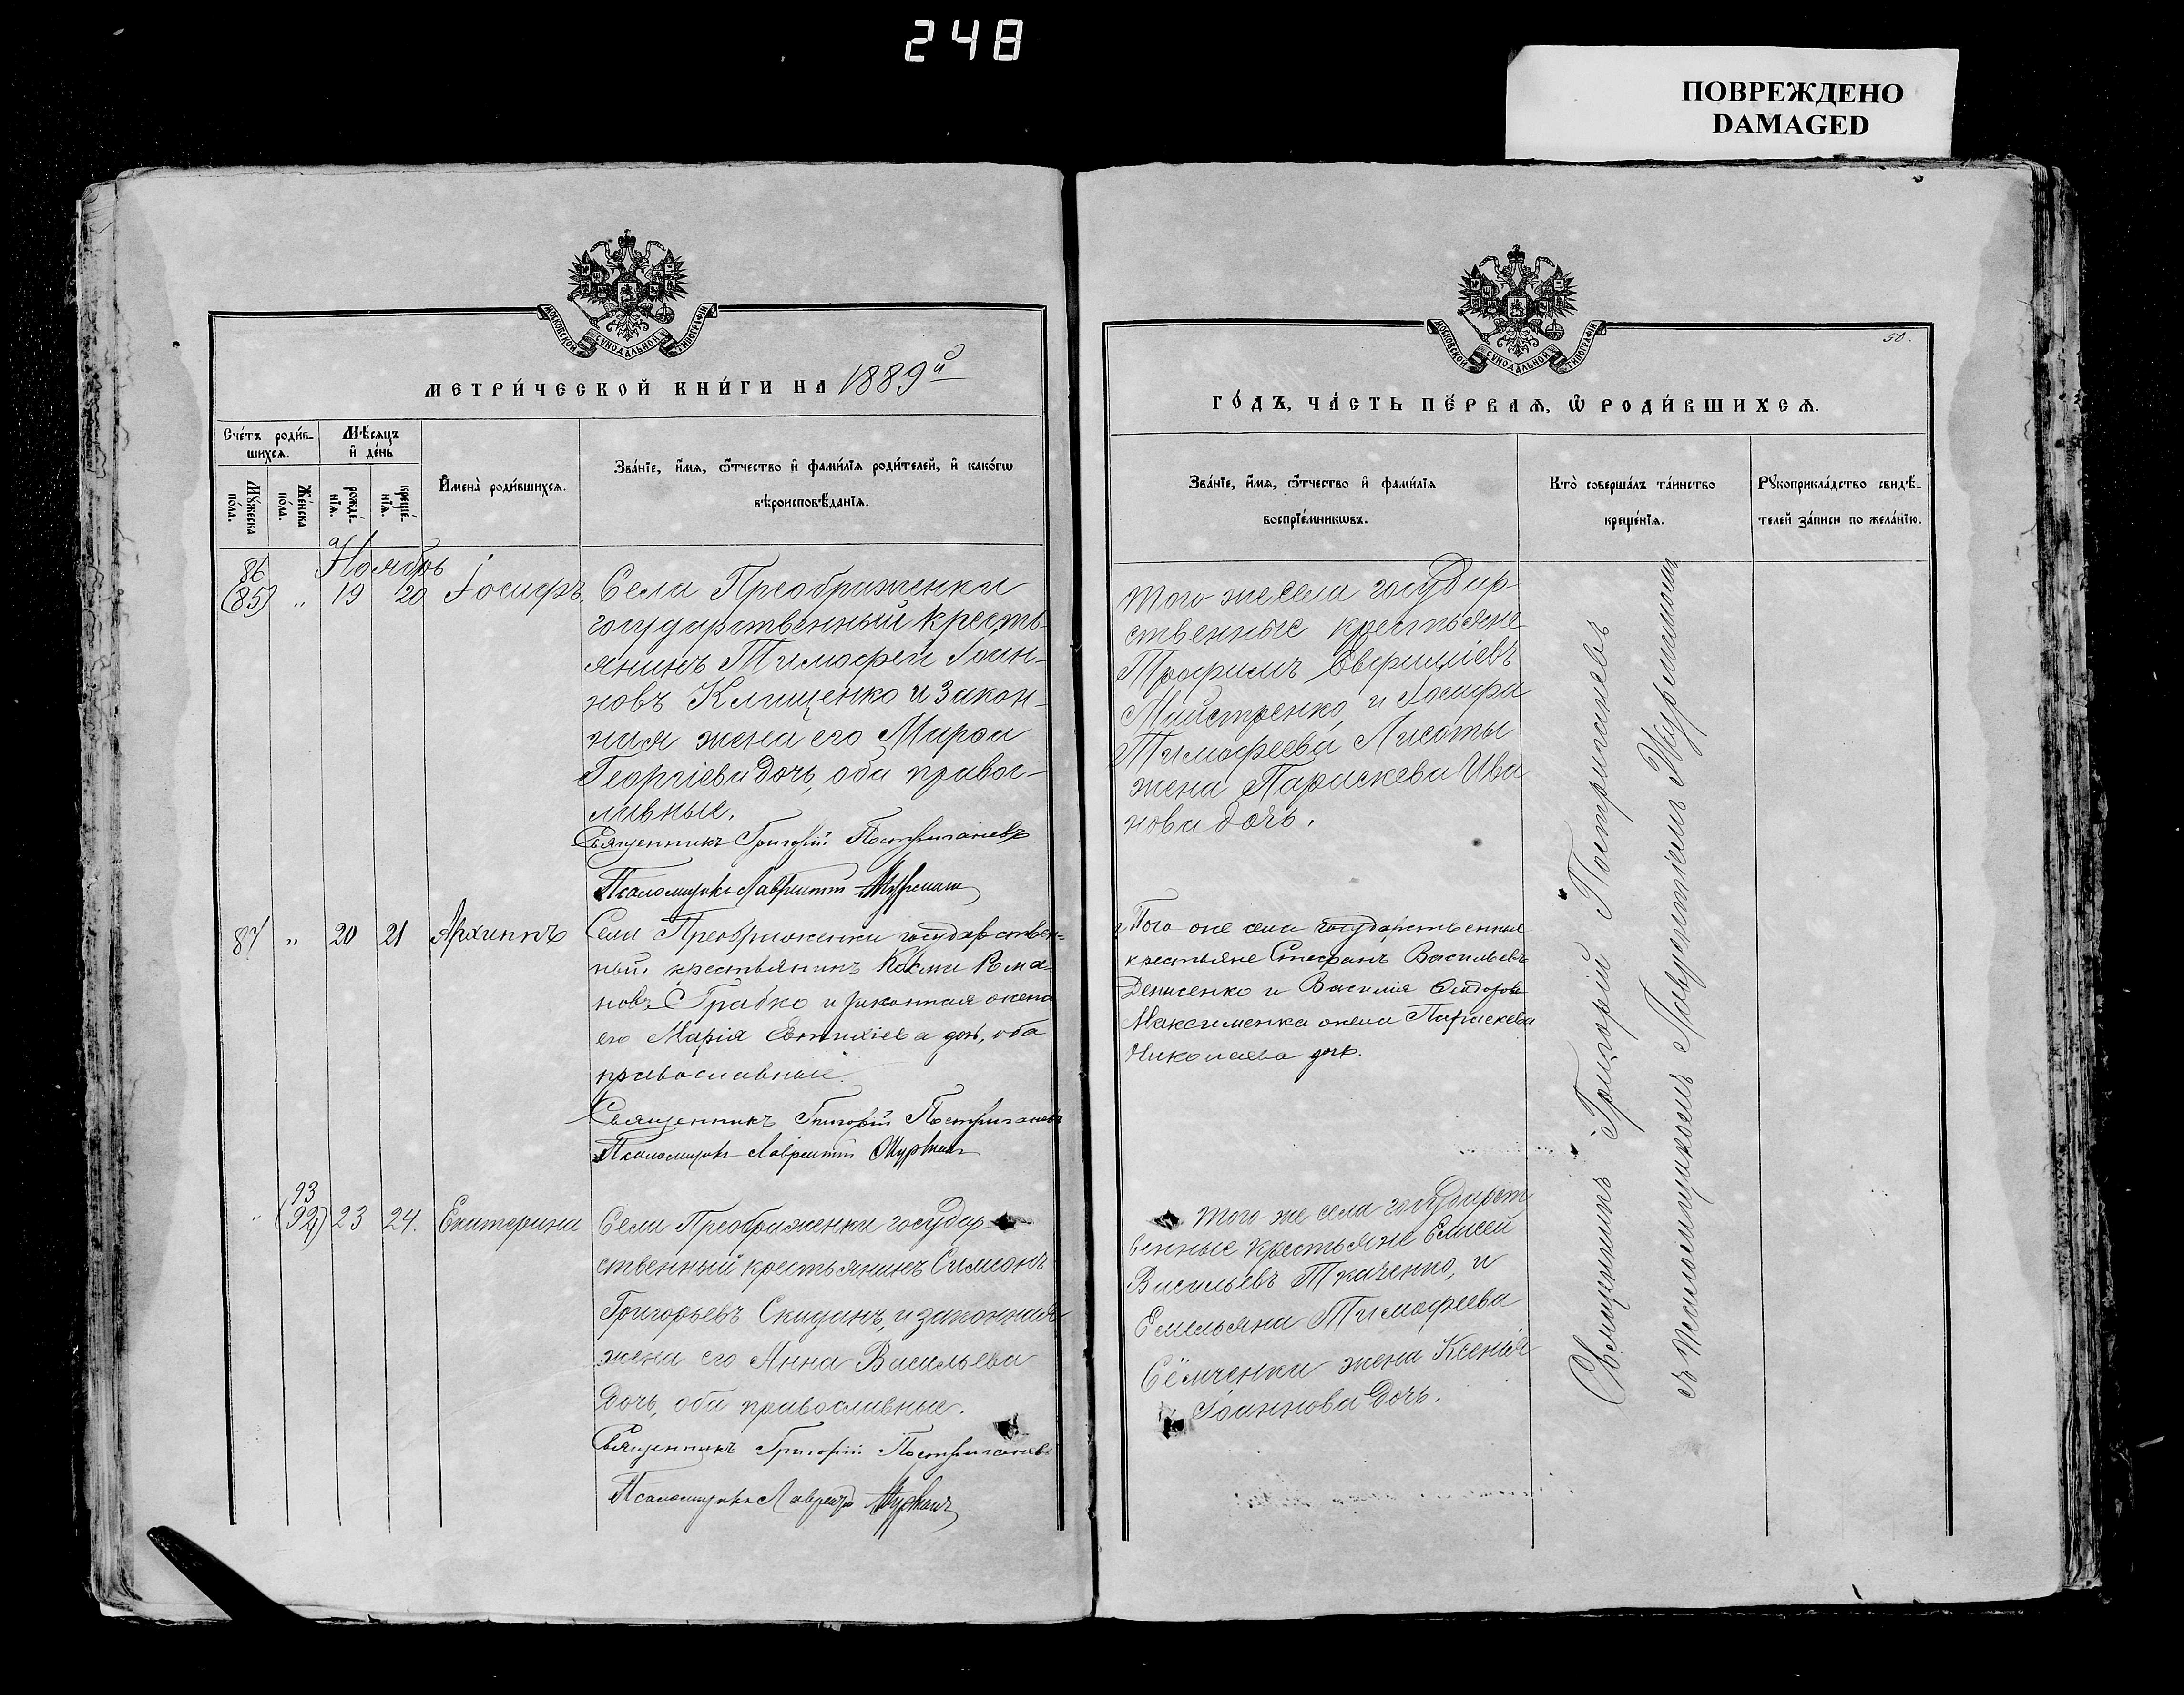 248
ПОВРЕЖДЕНО
DAMAGED
МОСКОВСКОЙ СѴНОДАЛЬНОЙ ТИПОГРАФІИ
МЕТРИ́ЧЕСКОЙ КНИ́ГИ НА 1889й
Сче́тъ роди́в-
шихсѧ.
Мѣ́сѧцъ
и҆ де́нь
Мꙋ́жеска
по́ла.
Же́нска
по́ла.
рожде́-
нїѧ.
креще́-
нїѧ.
И҆мена̀ роди́вшихсѧ.
Зва́нїе, и҆́мѧ, ѻ҆́тчество и҆ фами́лїѧ роди́телей, и҆ како́гѡ
вѣроисповѣ́данїѧ.
Ноябрь
86
(85) " 19 20 Іосифъ. Села Преображенки
государственный кресть-
янинъ Тимофей Іоан-
новъ Клищенко и закон-
ная жена его Марѳа
Георгіева дочь, оба правос-
лавные.
Священникъ Григорій Постригачевъ
Псаломщикъ Лаврентій
87 " 20 21 Архиппъ Села Преображенки государствен-
ный крестьянинъ Косма Рома-
новъ Грабко и законная жена
его Марія Евтихіева дочь, оба
православные.
Священникъ Григорій Постригачевъ
Псаломщикъ Лаврентій
93
(92) 23 24. Екатерина Села Преображенки государ-
ственный крестьянинъ Симеонъ
Григорьевъ Скиданъ, и законная
жена его Анна Васильева
дочь, оба православные.
Священникъ Григорій Постригачевъ
Псаломщикъ Лаврентій
50.
МОСКОВСКОЙ СѴНОДАЛЬНОЙ ТИПОГРАФІИ
ГО́ДЪ, ЧА́СТЬ ПЕ́РВАѦ, Ѡ҆ РОДИ́ВШИХСѦ.
Зва́нїе, и҆́мѧ, ѻ҆́тчество и҆ фами́лїѧ
воспрїе́мникѡвъ.
Кто̀ соверша́лъ та́инство
креще́нїѧ.
Рꙋкоприкла́дство свидѣ́-
телей за́писи по жела́нїю.
Того же села государ-
ственные крестьяне
Трофимъ
Майстренко, и Іосифа
Тимофеева Лисоты
жена Параскева Ива
нова дочь.
Того же села государственные
крестьяне Стефанъ Васильевъ
Денисенко и Василія Сидорова
Максименка жена Параскева
Николаева дочь.
Того-же села государст
венные крестьяне Елисей
Васильевъ Ткаченко, и
Емельяна Тимофеева
Сёмченки жена Ксенія
Іоаннова дочь.
Священникъ Григорій Постригачевъ
съ Псаломщикомъ Лаврентіемъ